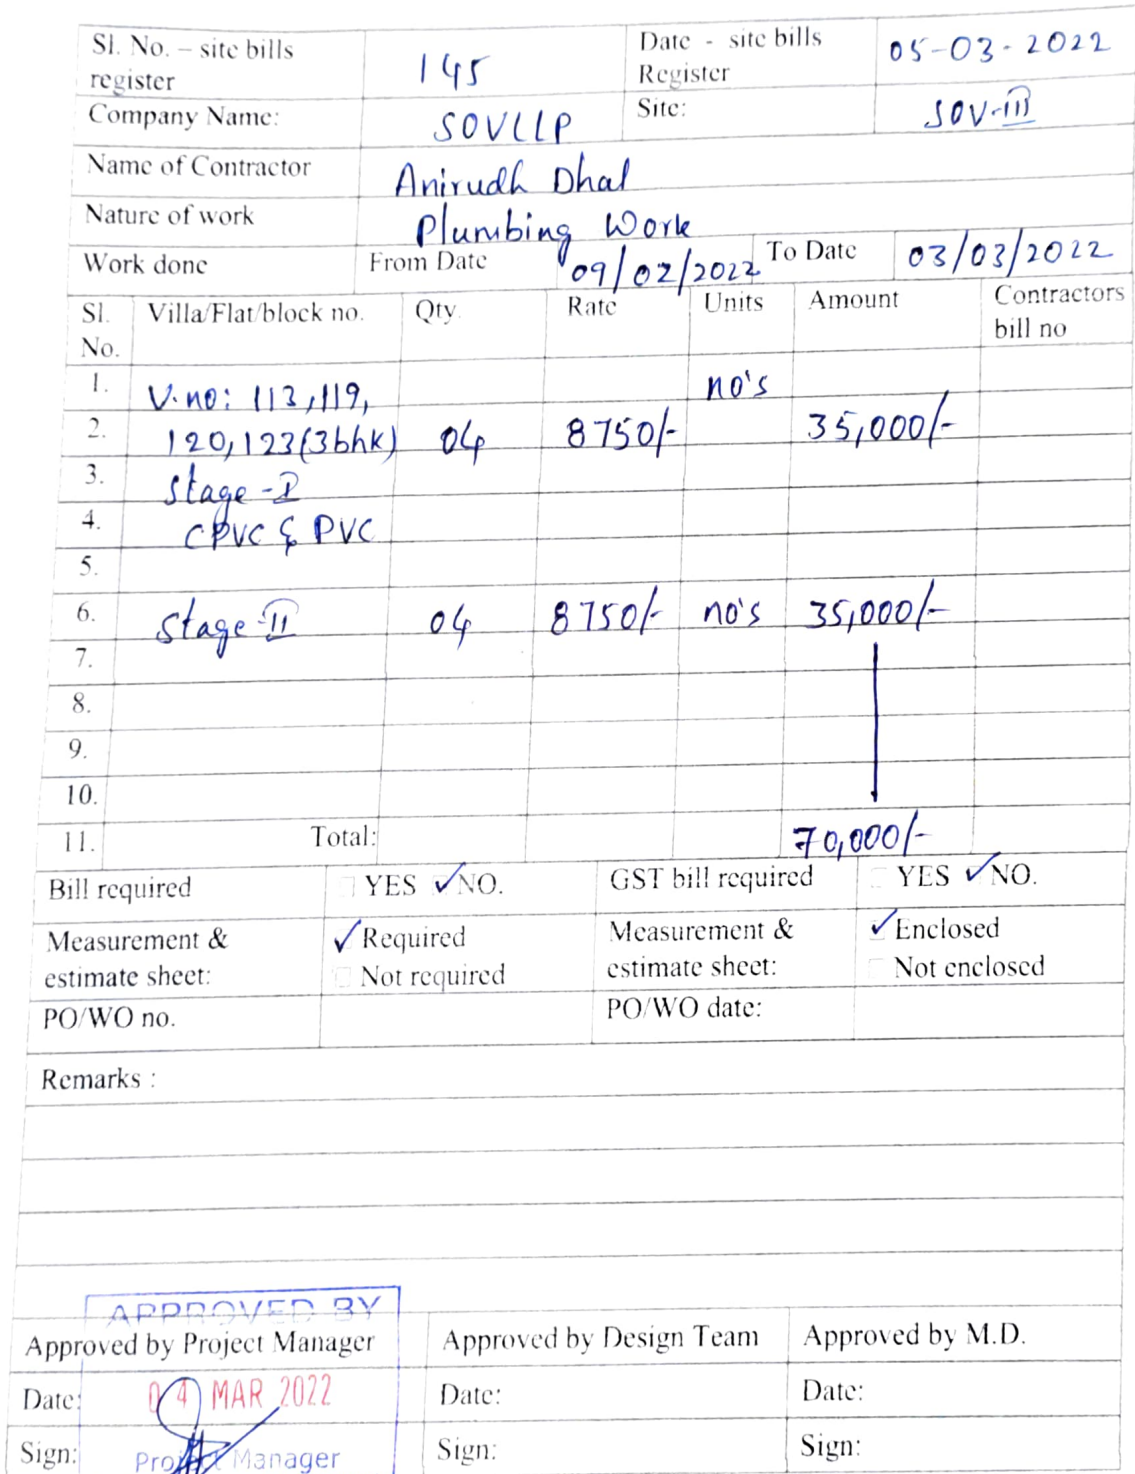 Sl. No. – site bills register 145 Date - site bills Register 05-03-2022
Company Name: SOVLLP Site: SOV-III
Name of Contractor Anirudh Dhal
Nature of work Plumbing Work
Work done From Date 09/02/2022 To Date 03/03/2022
Sl. No. Villa/Flat/block no. Qty. Rate Units Amount Contractors bill no
1. V.no: 113,119, no's
2. 120,123(3bhk) 04 8750/- 35,000/-
3. Stage-I
4. CPVC & PVC
5.
6. Stage-II 04 8750/- no's 35,000/-
7.
8.
9.
10.
11. Total: 70,000/-
Bill required YES ✓NO. GST bill required YES ✓NO.
Measurement & estimate sheet: ✓Required Measurement & estimate sheet: ✓Enclosed
Not required Not enclosed
PO/WO no. PO/WO date:
Remarks :
APPROVED BY
Approved by Project Manager Approved by Design Team Approved by M.D.
Date: 04 MAR 2022 Date: Date:
Sign: Project Manager Sign: Sign: